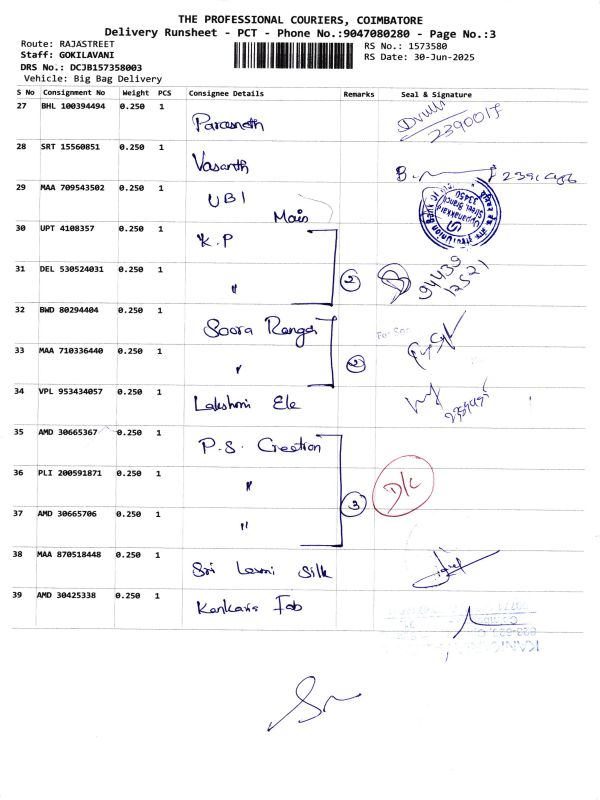 THE PROFESSIONAL COURIERS, COIMBATORE
Delivery Runsheet - PCT - Phone No.:9047080280 - Page No.:3
Route: RAJASTREET
RS No.: 1573580
Staff: GOKILAVANI
RS Date: 30-Jun-2025
DRS No.: DCJB157358003
Vehicle: Big Bag Delivery
S No Consignment No Weight PCS Consignee Details Remarks Seal & Signature
27 BHL 100394494 0.250 1 Parasneth 2390017
28 SRT 15560851 0.250 1 Vasanth
29 MAA 709543502 0.250 1 UBI Main
30 UPT 4108357 0.250 1 K.P
31 DEL 530524031 0.250 1 " 2 94439 12521
32 BWD 80294404 0.250 1 Soora Ranga
33 MAA 710336440 0.250 1 " 2
34 VPL 953434057 0.250 1 Lakshmi Ele
35 AMD 30665367 0.250 1 P.S. Creation
36 PLI 200591871 0.250 1 " D/C
37 AMD 30665706 0.250 1 " 3
38 MAA 870518448 0.250 1 Sri Laxmi Silk
39 AMD 30425338 0.250 1 Kankaria Fab